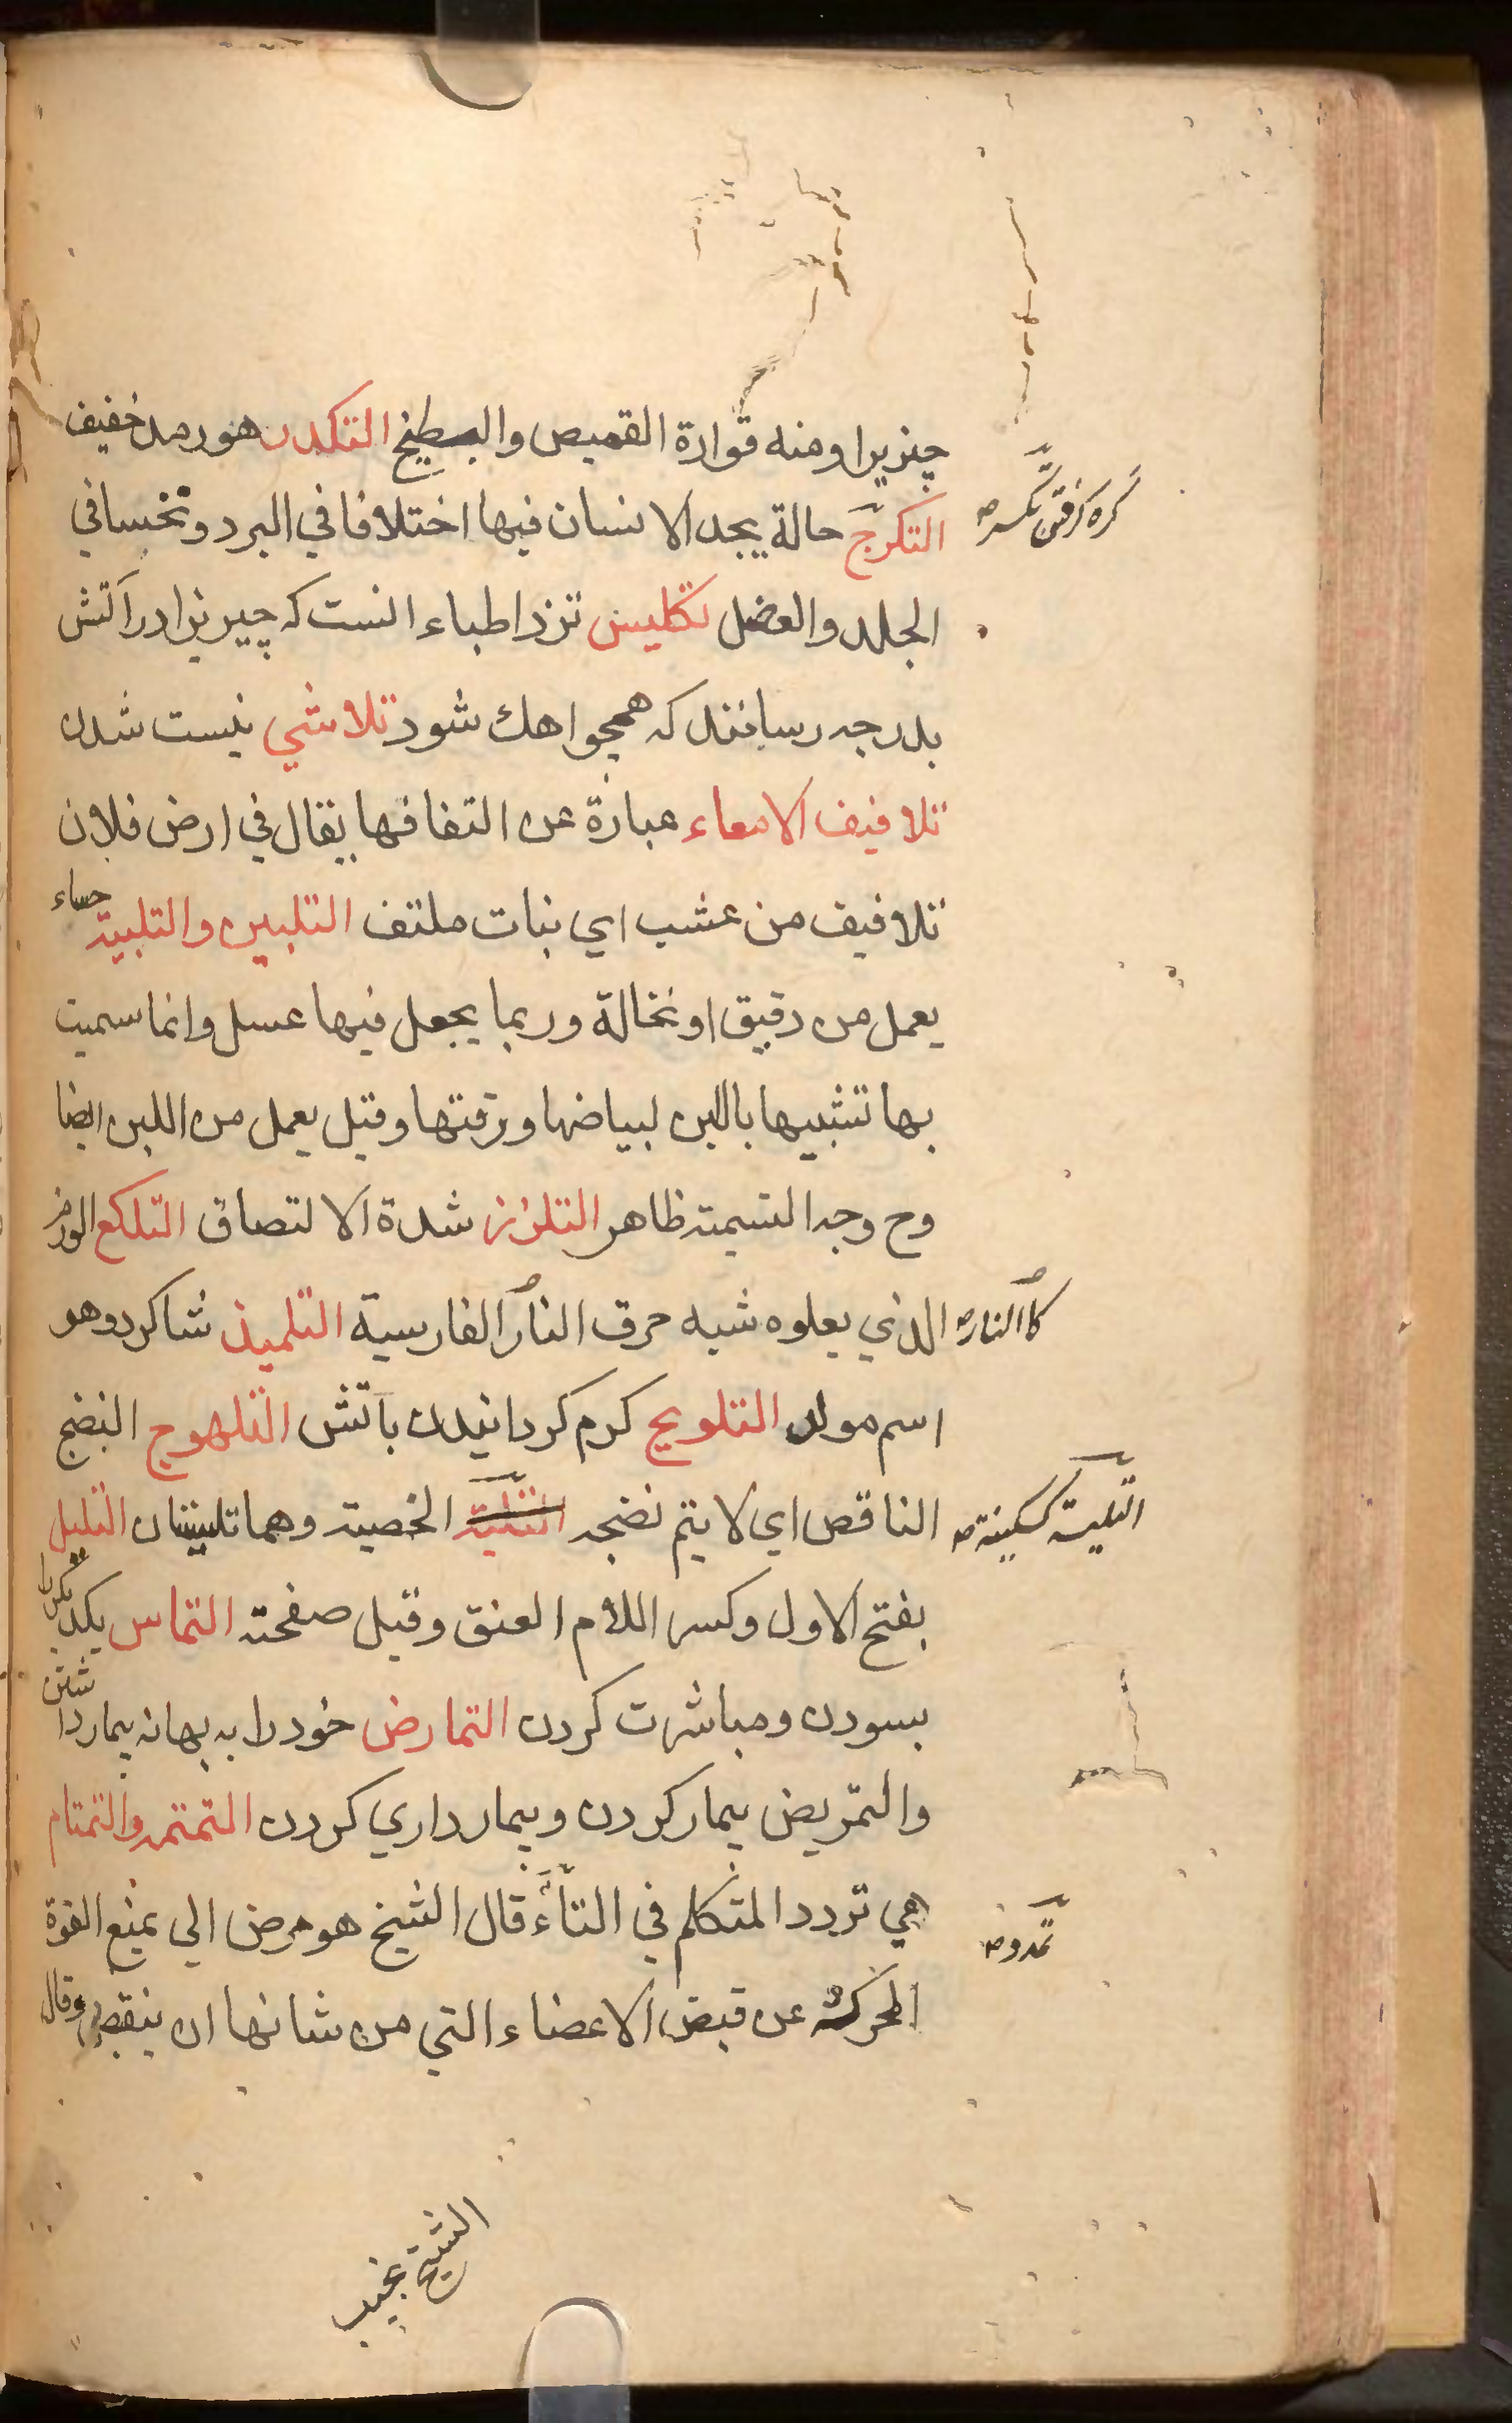 چيزيرا ومنه قوارة القميص والبطيخ التكدر هو رمد خفيف
التكرّج حالة يجد الانسان فيها اختلافا في البرد ونخسا في
الجلد والعضل تكليس نزد اطباء انست كه چيزيرا در آتش
بدرجه رسانند كه همچو اهك شود تلاشي نيست شدن
تلافيف الامعاء عبارة عن التفافها يقال في ارض فلان
تلافيف من عشب اي نبات ملتف التلبين والتلبينة حساء
يعمل من دقيق او نخالة وربما يجعل فيها عسل وانما سميت
بها تشبيها باللبن لبياضها ورقتها وقيل يعمل من اللبن ايضا
وح وجه التسمية ظاهر التلزز شدة الالتصاق التلكع الورم
الذي يعلوه شبه حرق النار الفارسية التلميذ شاكرد وهو
كاالنار
اسم مولد التلويح كرم كردانيدن بآتش التلهوج النضج
الناقص اي لا يتم نضجه التلية الخصية وهما تلينتان التليل
التلية كسكينة
بفتح الاول وكسر اللام العنق وقيل صفحته التماس يكديكر را
بسودن ومباشرت كردن التمارض خود را به بهانه بيمار داشتن
والتمريض بيمار كردن وبيمارداري كردن التمتمه والتمتام
هي تردد المتكلم في التاء قال الشيخ هو مرض الي يمنع القوة
المحركة عن قبض الاعضاء التي من شانها ان ينقبض وقال
الشيخ نجيب